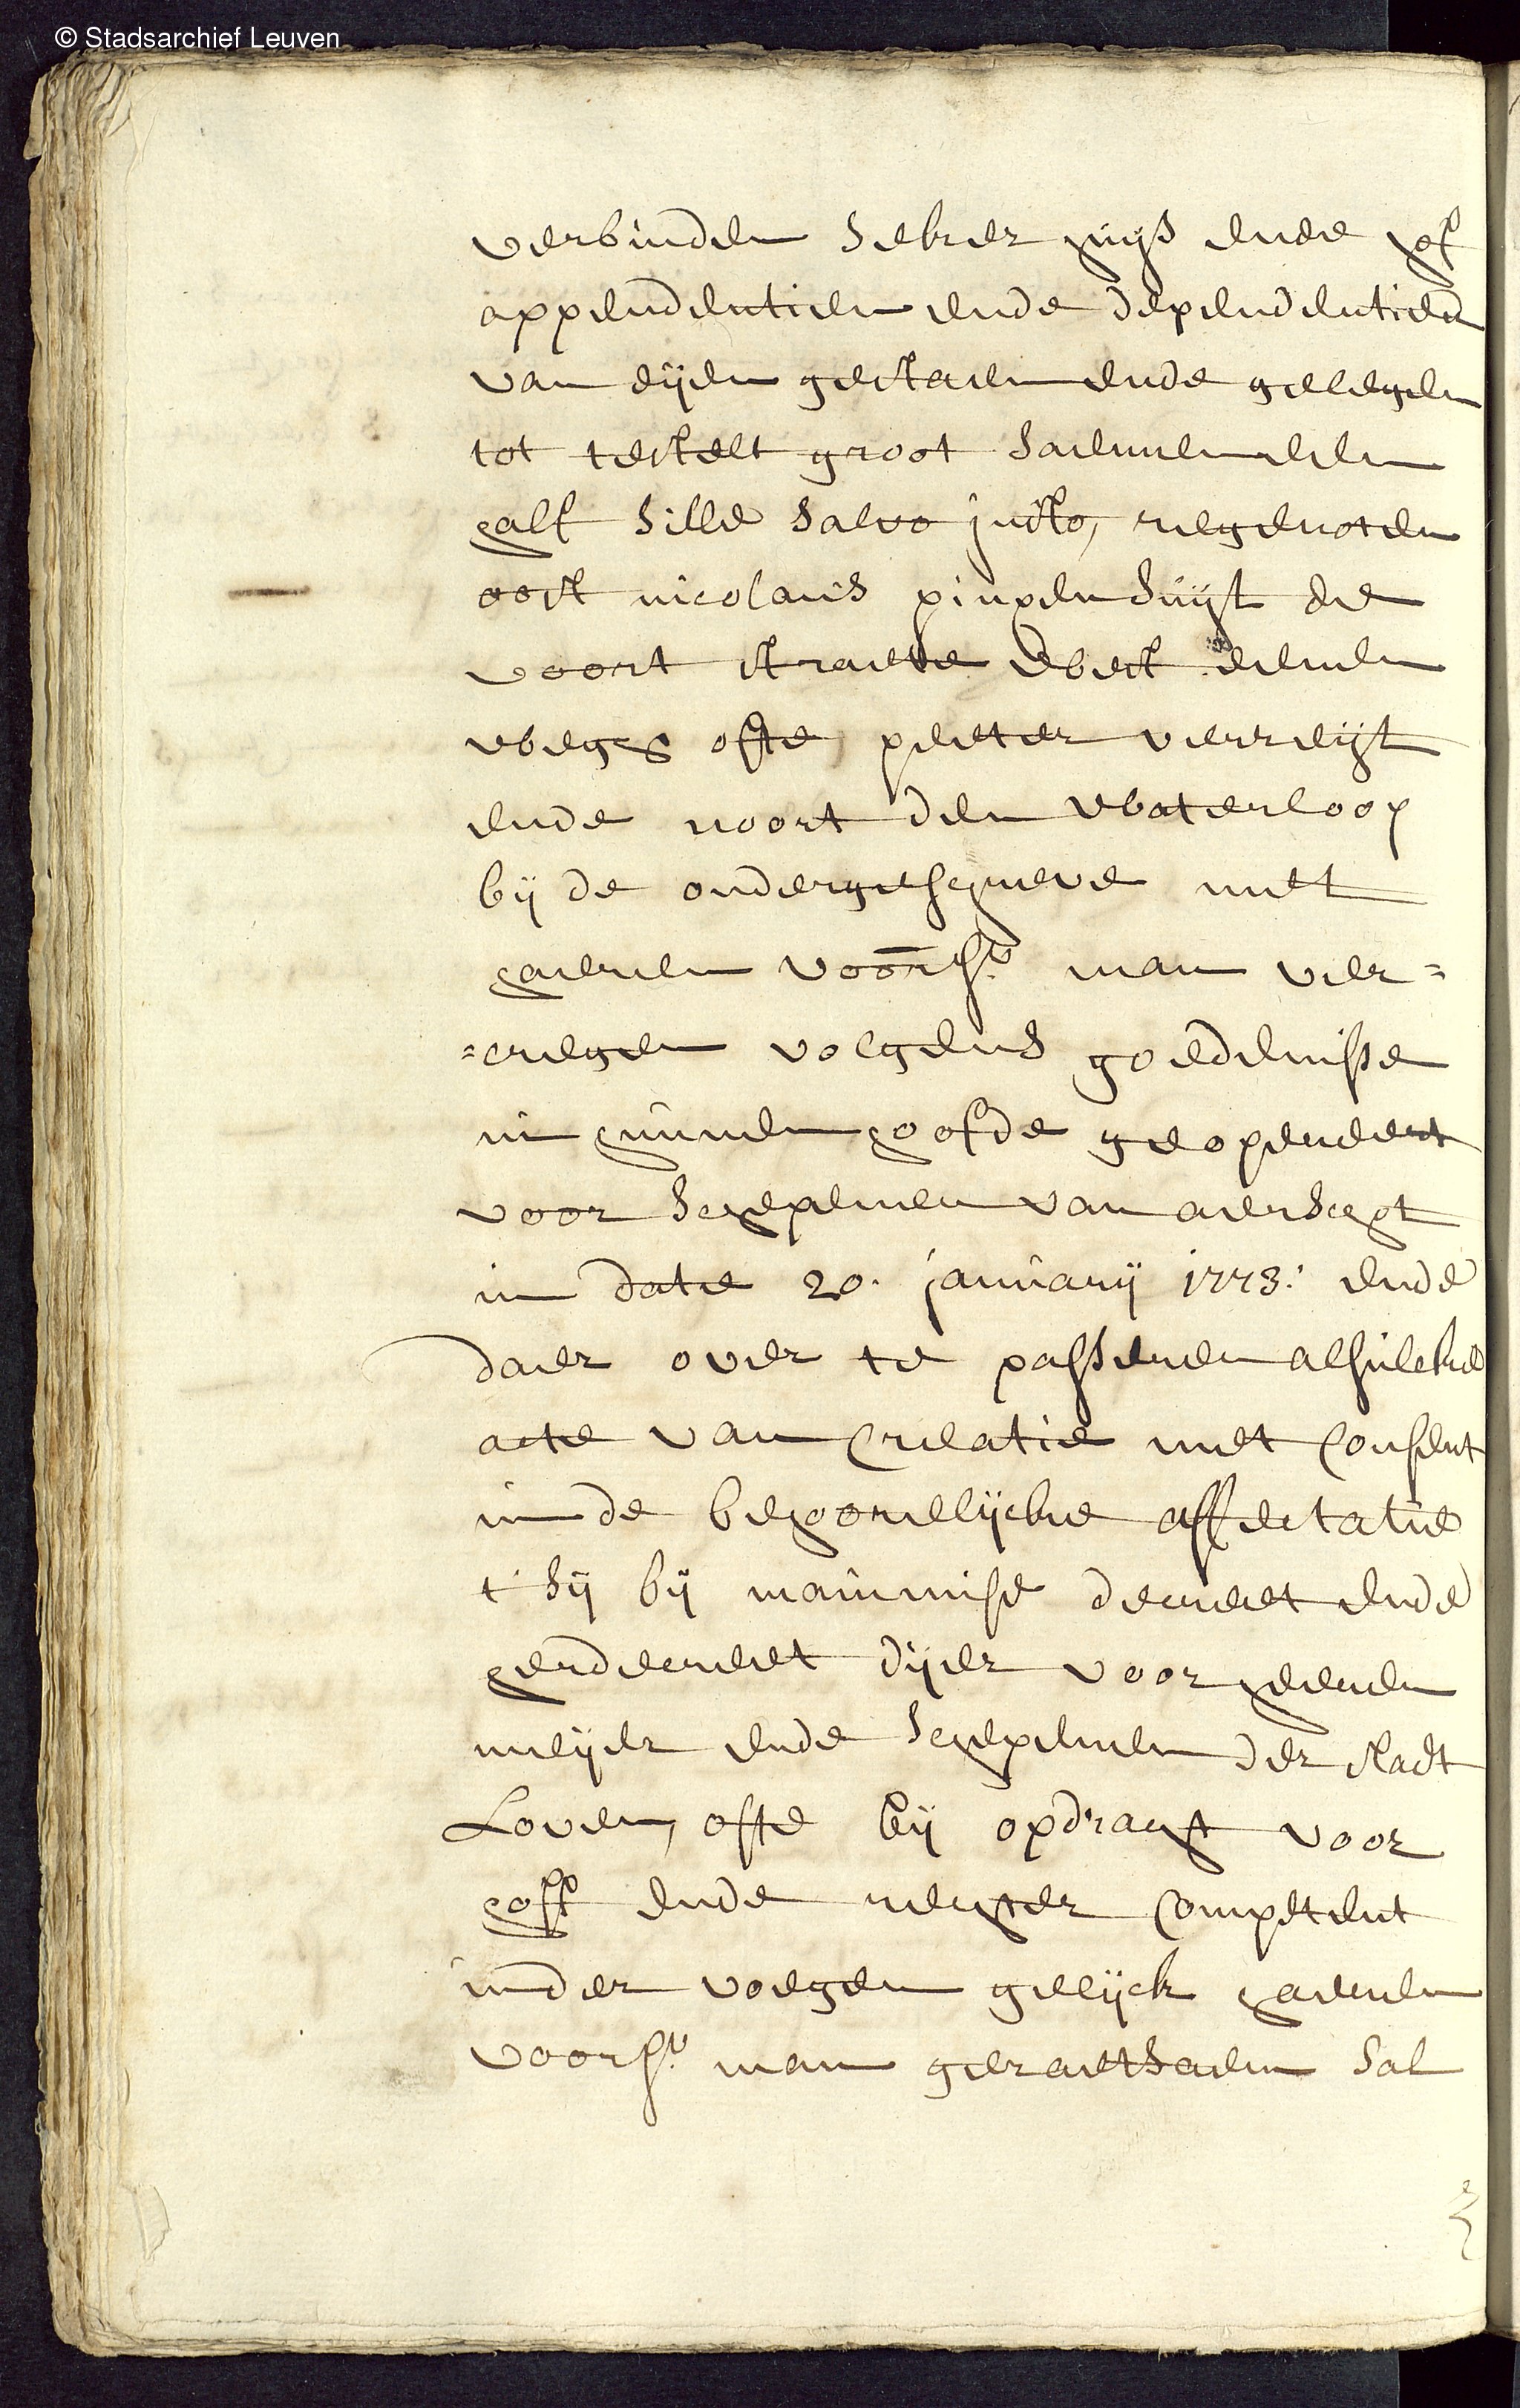 © Stadsarchief Leuven
verbinden seker huijs ende hof
appendentien ende dependentien
van dijen gestaen ende gelegen
tot testelt groot saemen een
half sille salvo justo, regenoten
oost nicolaus pinxen suijt de
voort straete west eenen
wegh ofte peeter verreijt
ende noort den waterloop
bij de ondergeschreve met
haeren voors: man ver=
=cregen volgens goedenisse
in hunnen hoofde geopereert
voor schepenen van aerschot
in date 20. januarij 1773: ende
daer over te passeren alsulcke
acte van creatie met consent
in de behoorelijcke affectatie
t'sij bij mainmise decreet ende
herdecreet dijer voor heeren
meijer ende schepenen der stadt
Loven, ofte bij opdracht voor
hoff ende rechter competent
inder voegen gelijck haeren
voors: man geraetsaem sal